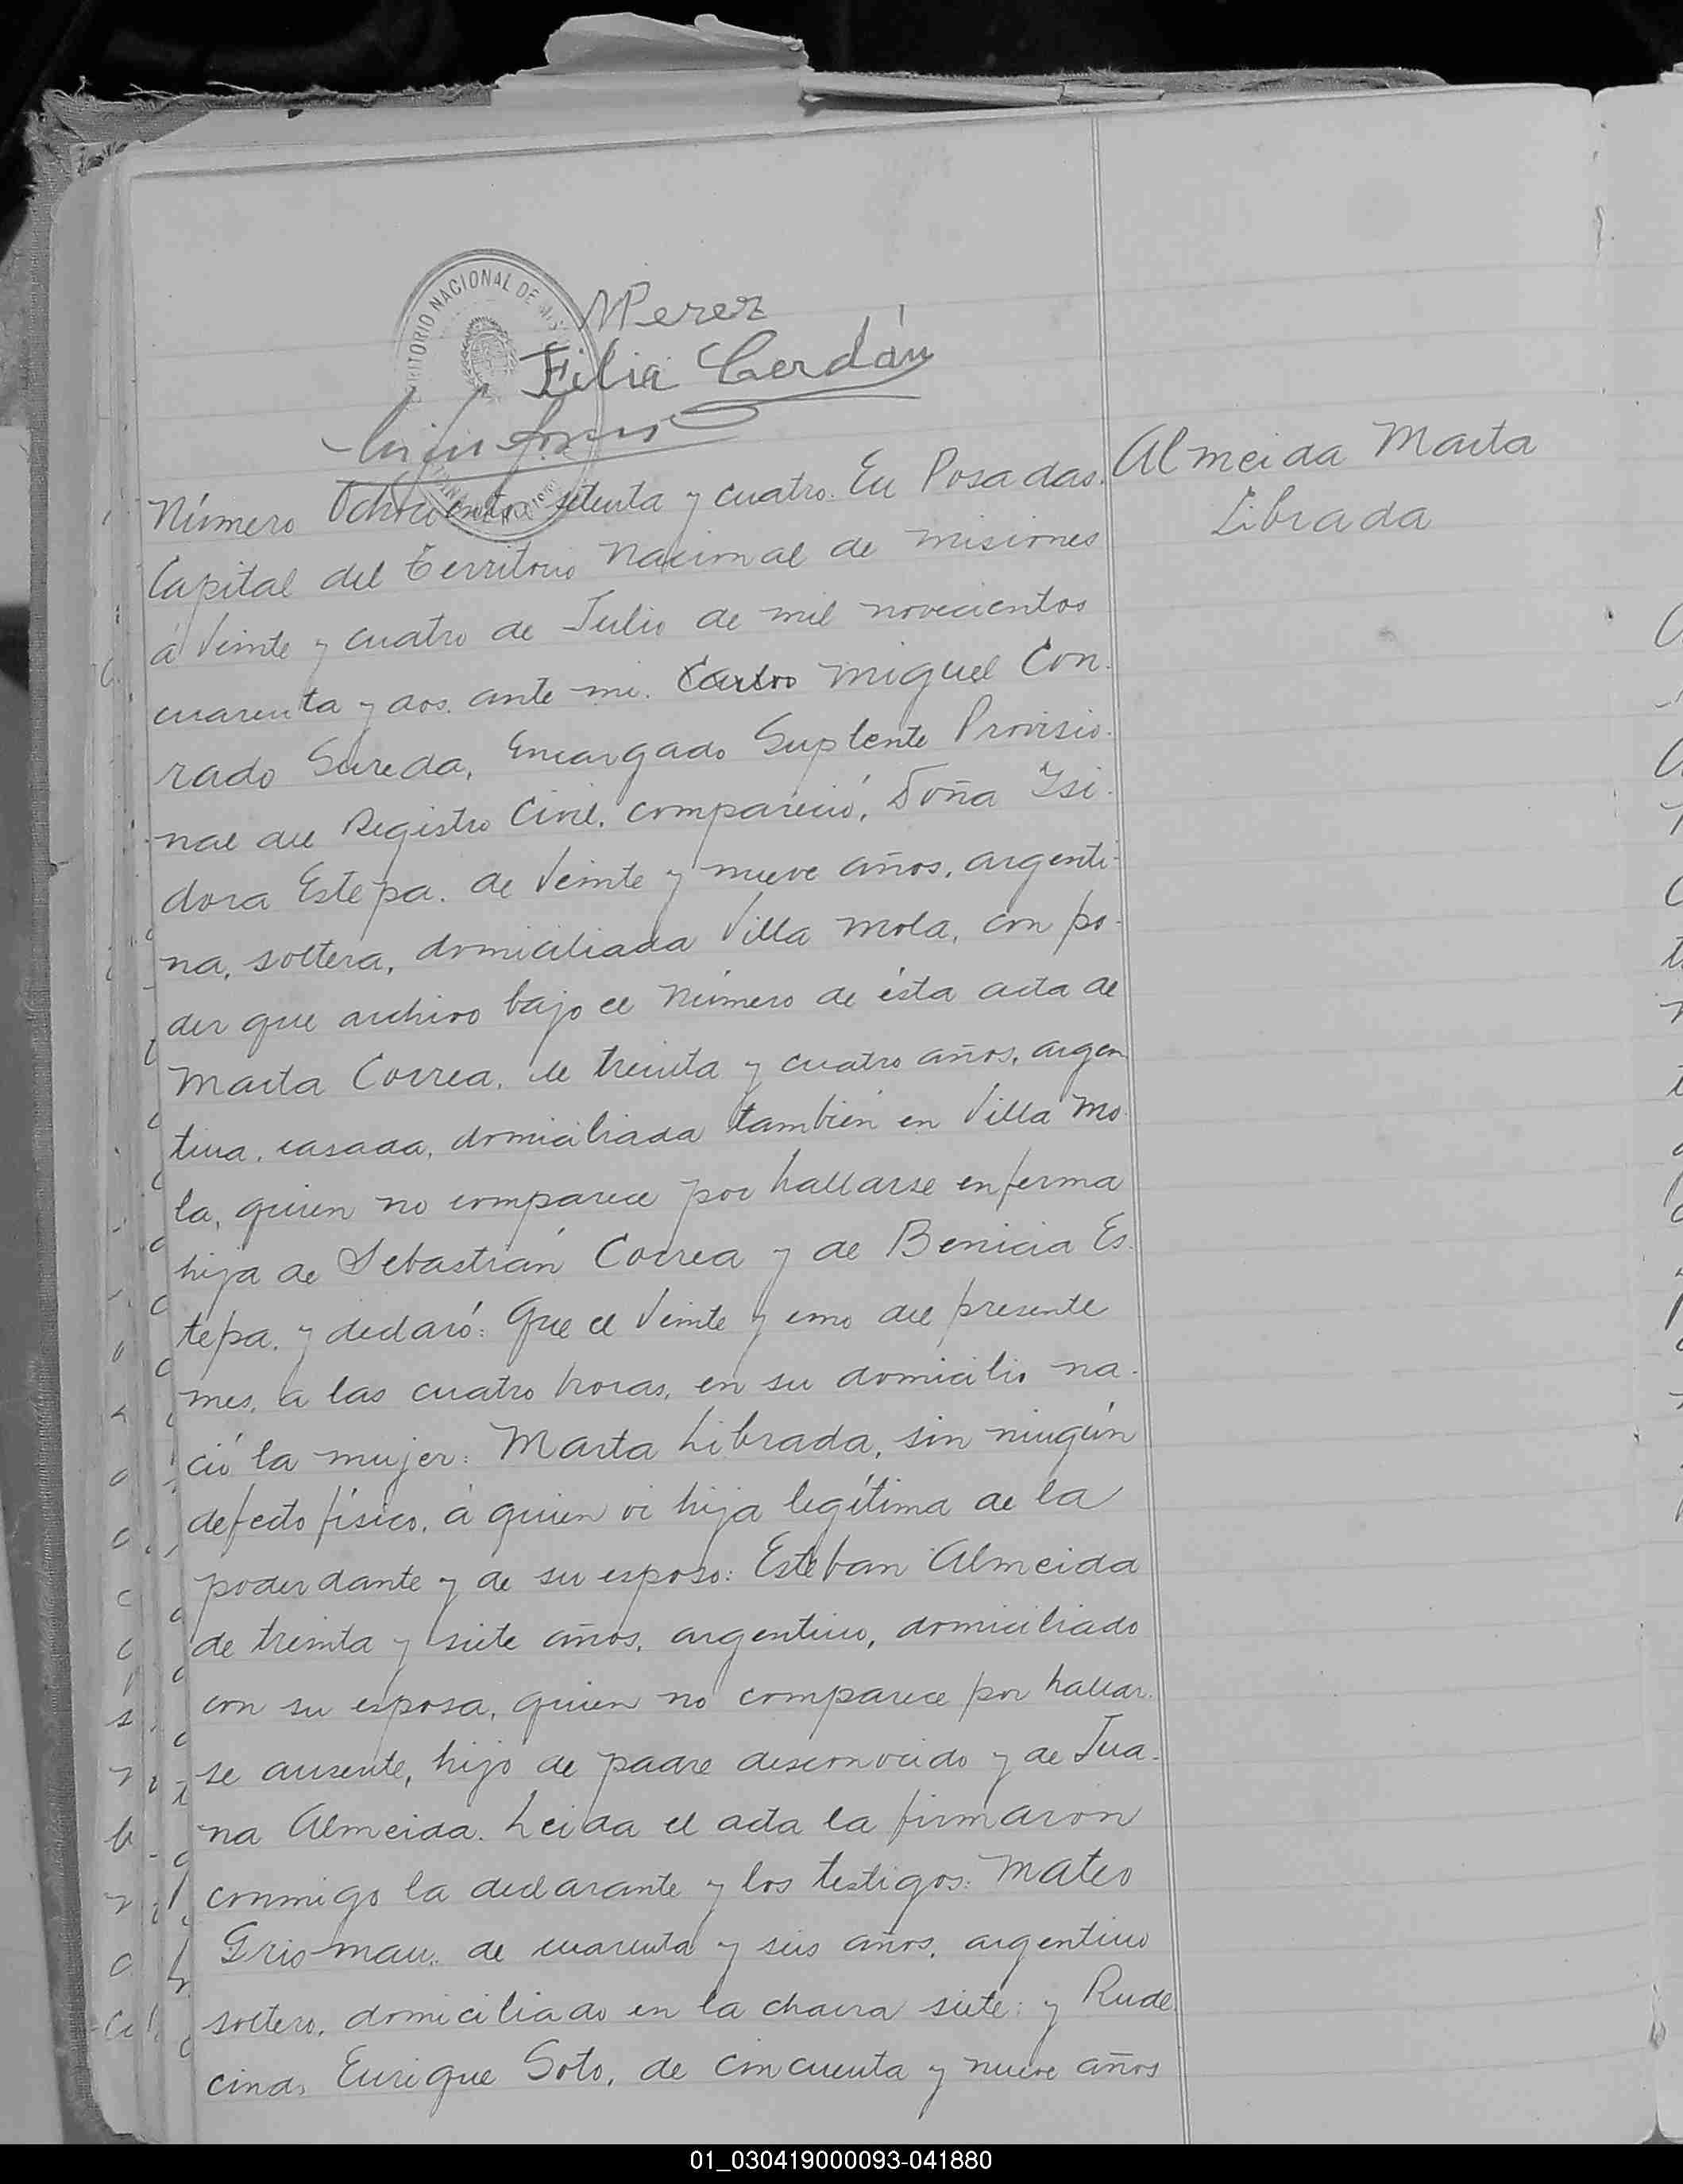 TERRITORIO NACIONAL DE MIS
MPerez
Filia Cerdán
Almeida Marta
Librada
Número Ochocientos setenta y cuatro. En Posadas.
Capital del Territorio Nacional de Misiones
á veinte y cuatro de Julio de mil novecientos
cuarenta y dos. ante mi. Carlos Miguel Con-
rado Sureda, Encargado Suplente Provisio-
nal del Registro Civil. compareció, Doña Isi-
dora Estepa. de veinte y nueve años, argenti-
na, soltera, domiciliada Villa Mola, con po-
der que archivo bajo el número de ésta acta de
Marta Correa, de treinta y cuatro años, argen
tina, casada, domiciliada también en Villa Mo-
la, quien no comparece por hallarse enferma
hija de Sebastián Correa y de Benicia Es-
tepa, y declaró: Que el veinte y uno del presente
mes, a las cuatro horas, en su domicilio na-
ció la mujer: Marta Librada, sin ningún
defecto físico, á quien vi hija legítima de la
poderdante y de su esposo: Esteban Almeida
de treinta y siete años, argentino, domiciliado
con su esposa, quien no comparece por hallar-
se ausente, hijo de padre desconocido y de Jua-
na Almeida. Leida el acta la firmaron
conmigo la declarante y los testigos: Mateo
Grisman. de cuarenta y seis años, argentino
soltero, domiciliado en la chacra siete: y Rude-
cindo Enrique Soto, de cincuenta y nueve años
01_030419000093-041880